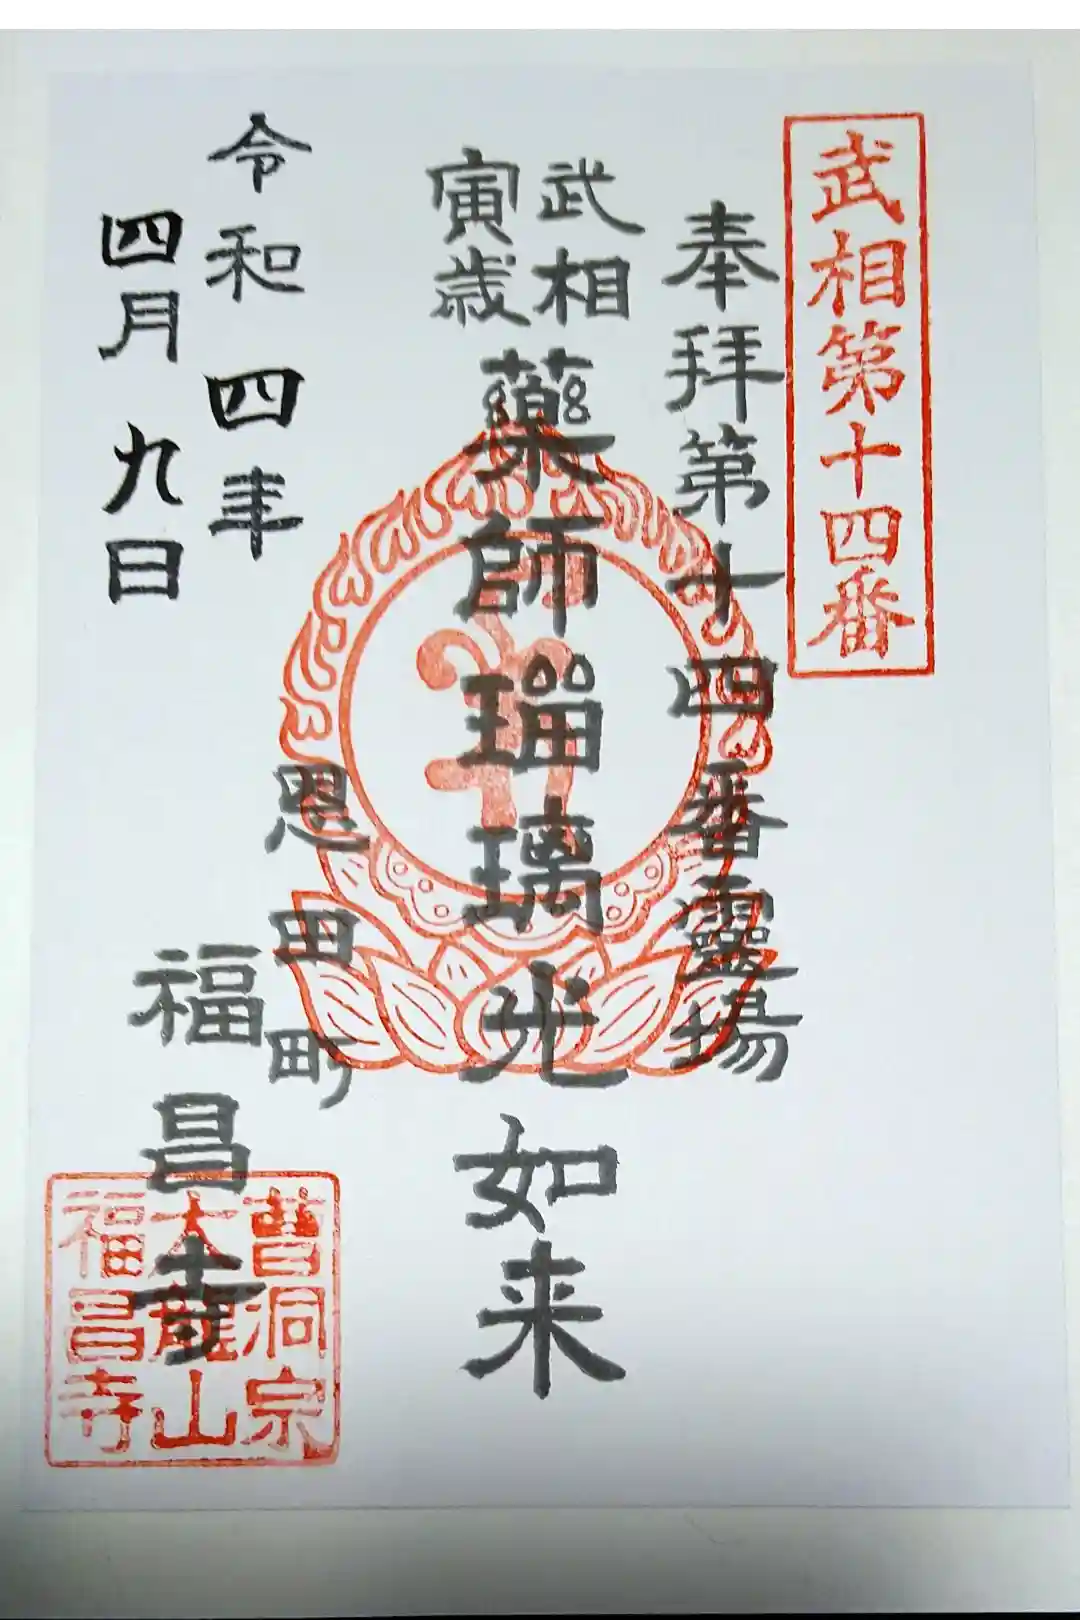 武相第十四番
奉拜第十四番靈場
武相
寅歳
藥師瑠璃光如来
恩田町
福昌寺
令和四年
四月九日
曹洞宗
大龍山
福昌寺